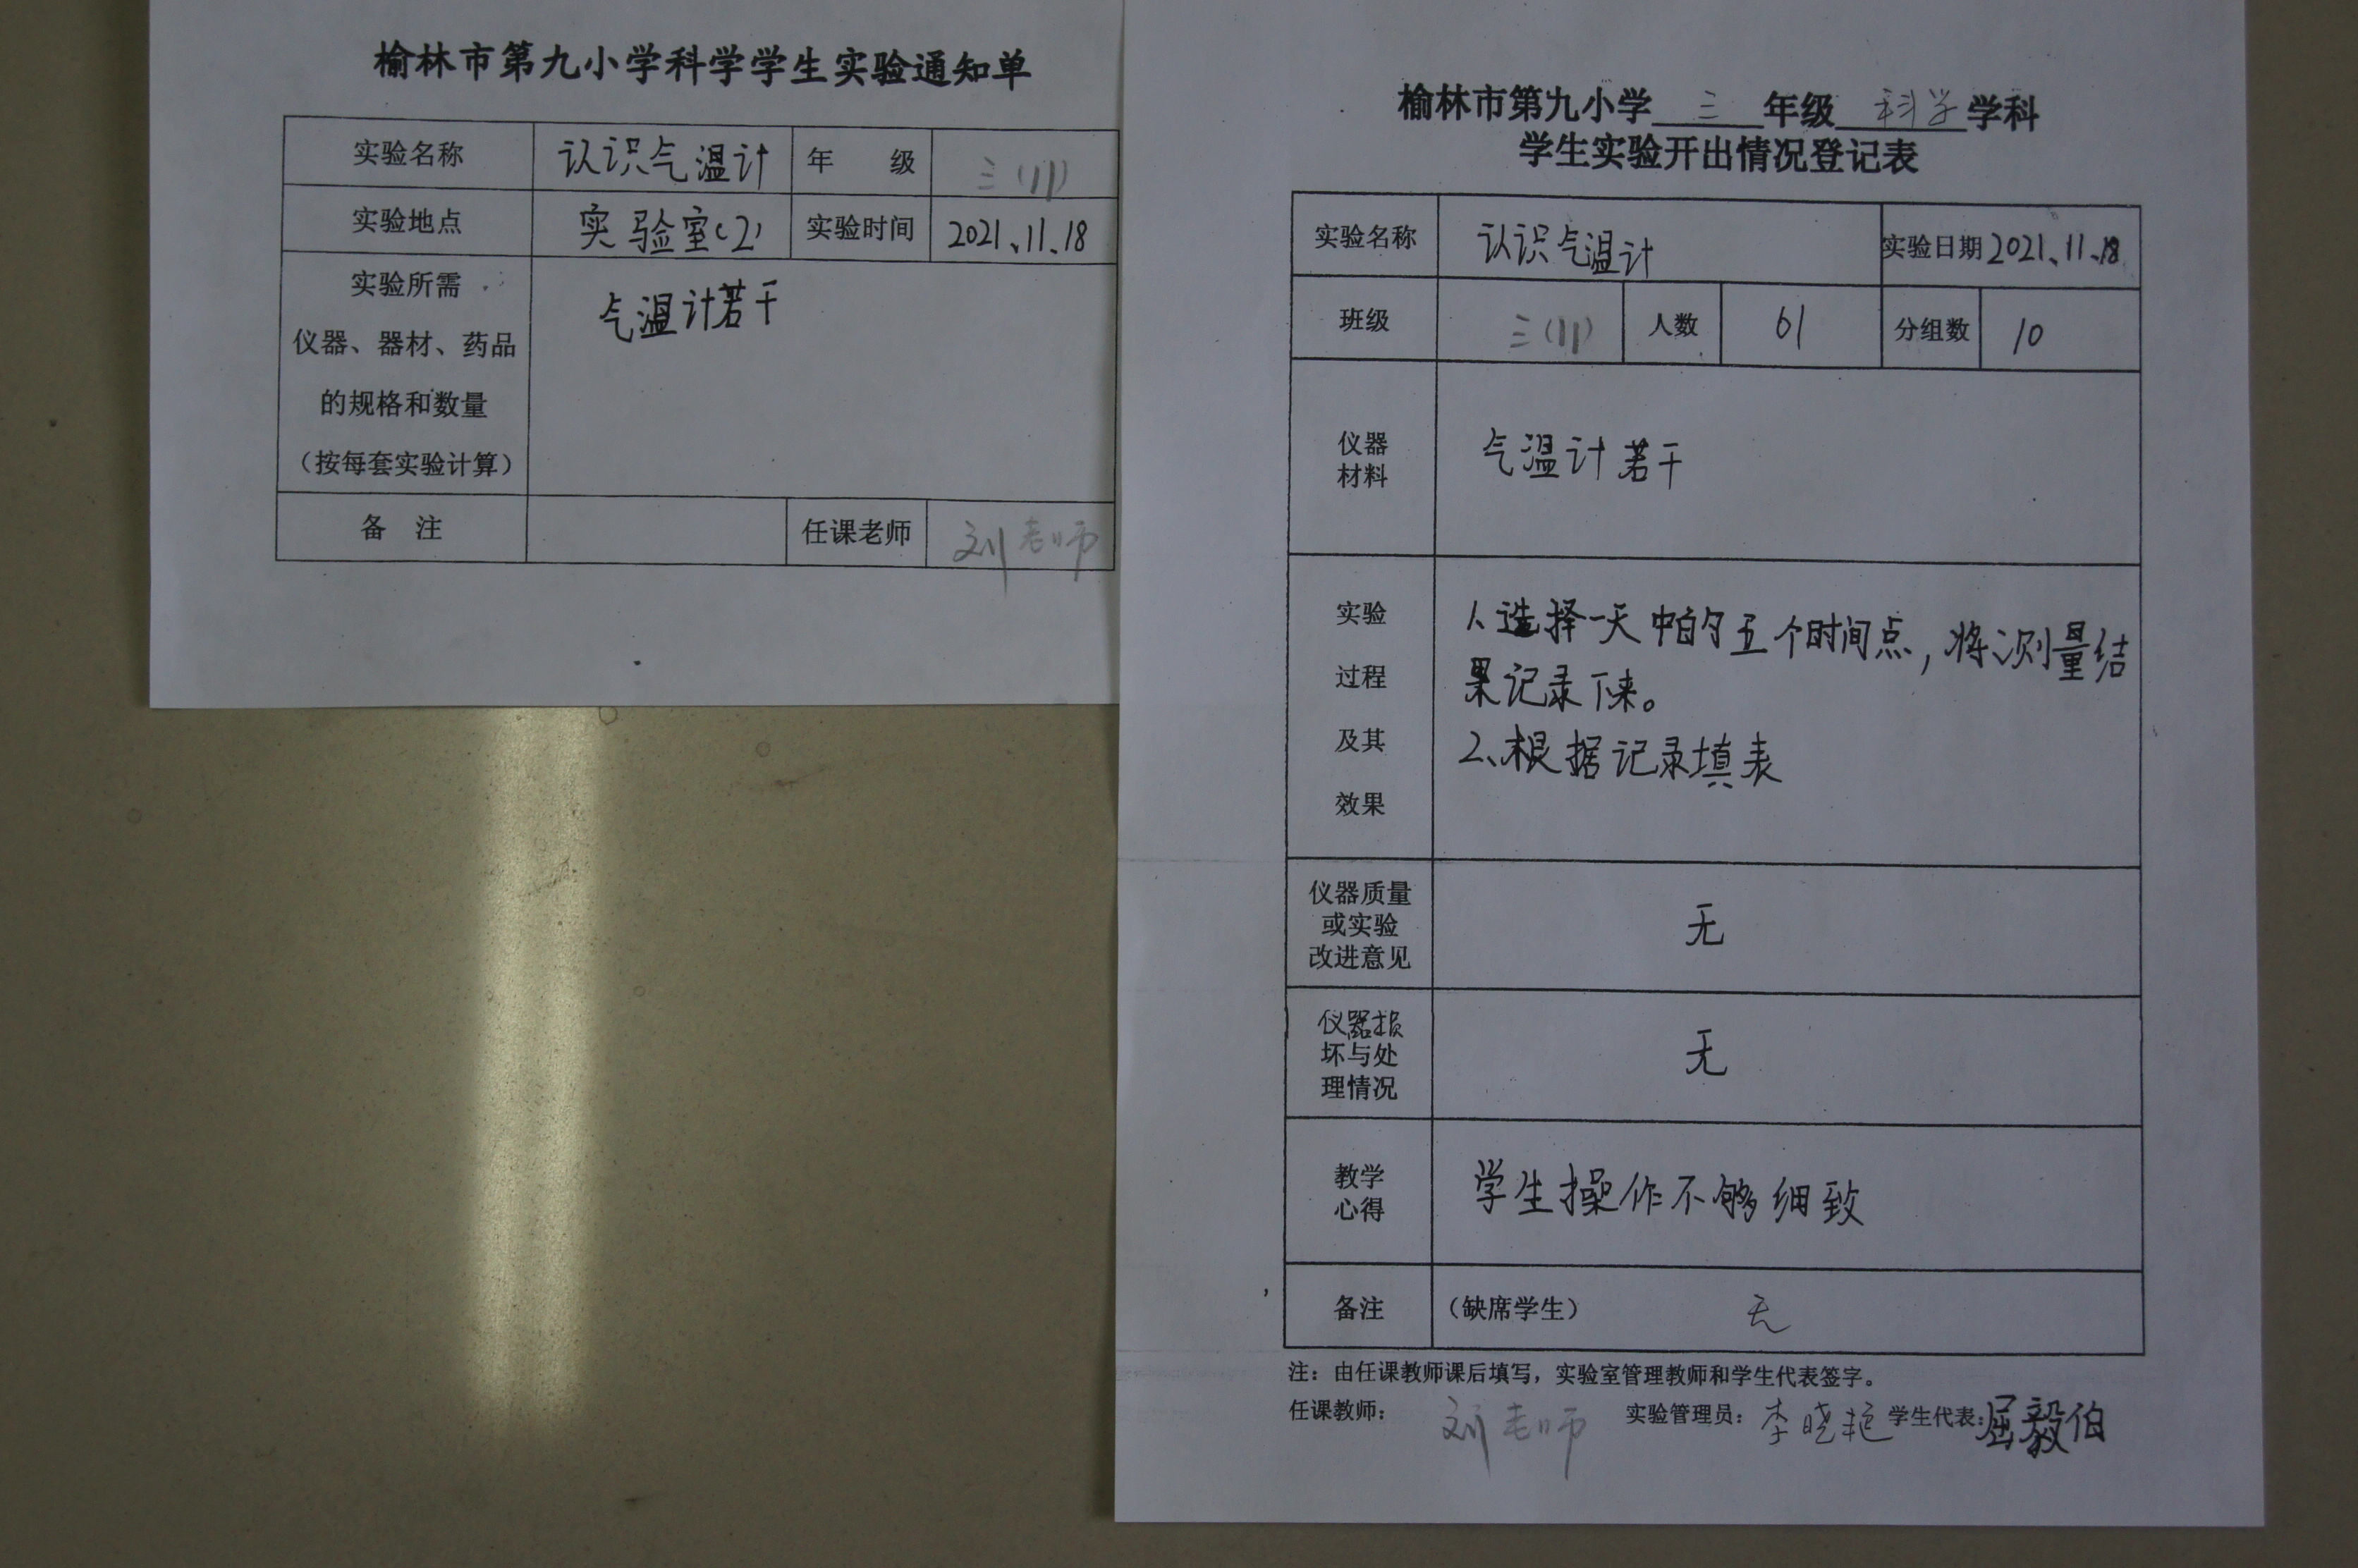 榆林市第九小学科学学生实验通知单
实验名称 认识气温计 年 级 三(11)
实验地点 实验室(2) 实验时间 2021、11、18
实验所需
仪器、器材、药品
的规格和数量
（按每套实验计算）
气温计若干
备 注 任课老师 刘老师
榆林市第九小学 三 年级 科学 学科
学生实验开出情况登记表
实验名称 认识气温计 实验日期 2021、11、18
班级 三(11) 人数 61 分组数 10
仪器
材料
气温计若干
实验
过程
及其
效果
1、选择一天中的五个时间点，将测量结
果记录下来。
2、根据记录填表
仪器质量
或实验
改进意见
无
仪器损
坏与处
理情况
无
教学
心得
学生操作不够细致
备注 （缺席学生） 无
注：由任课教师课后填写，实验室管理教师和学生代表签字。
任课教师： 刘老师 实验管理员：李晓艳 学生代表：屈毅伯